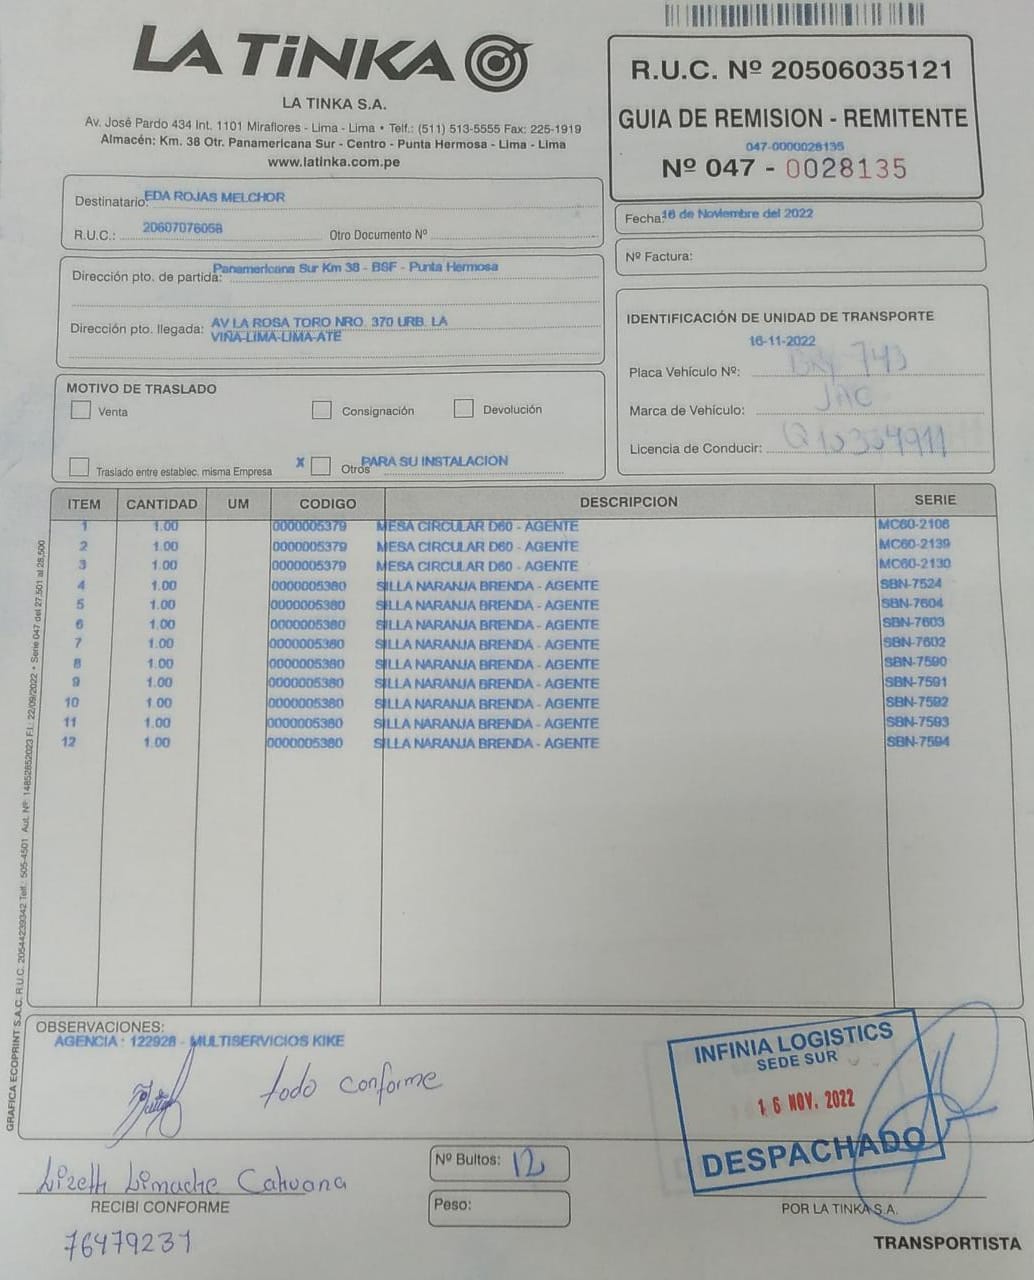 LA TiNKA
LA TINKA S.A.
Av. José Pardo 434 Int. 1101 Miraflores - Lima - Lima • Telf.: (511) 513-5555 Fax: 225-1919
Almacén: Km. 38 Otr. Panamericana Sur - Centro - Punta Hermosa - Lima - Lima
www.latinka.com.pe
R.U.C. Nº 20506035121
GUIA DE REMISION - REMITENTE
047-0000028135
Nº 047 - 0028135
Destinatario: EDA ROJAS MELCHOR
R.U.C.: 20607076058 Otro Documento Nº
Fecha: 16 de Noviembre del 2022
Nº Factura:
Dirección pto. de partida: Panamericana Sur Km 38 - BSF - Punta Hermosa
Dirección pto. llegada: AV LA ROSA TORO NRO. 370 URB. LA
VIÑA-LIMA-LIMA-ATE
IDENTIFICACIÓN DE UNIDAD DE TRANSPORTE
16-11-2022
Placa Vehículo Nº: 743
Marca de Vehículo: JAC
Licencia de Conducir: Q15334911
MOTIVO DE TRASLADO
Venta Consignación Devolución
Traslado entre establec. misma Empresa X Otros PARA SU INSTALACION
ITEM CANTIDAD UM CODIGO DESCRIPCION SERIE
1 1.00 0000005379 MESA CIRCULAR D60 - AGENTE MC60-2106
2 1.00 0000005379 MESA CIRCULAR D60 - AGENTE MC60-2139
3 1.00 0000005379 MESA CIRCULAR D60 - AGENTE MC60-2130
4 1.00 0000005380 SILLA NARANJA BRENDA - AGENTE SBN-7524
5 1.00 0000005380 SILLA NARANJA BRENDA - AGENTE SBN-7604
6 1.00 0000005380 SILLA NARANJA BRENDA - AGENTE SBN-7603
7 1.00 0000005380 SILLA NARANJA BRENDA - AGENTE SBN-7602
8 1.00 0000005380 SILLA NARANJA BRENDA - AGENTE SBN-7590
9 1.00 0000005380 SILLA NARANJA BRENDA - AGENTE SBN-7591
10 1.00 0000005380 SILLA NARANJA BRENDA - AGENTE SBN-7592
11 1.00 0000005380 SILLA NARANJA BRENDA - AGENTE SBN-7593
12 1.00 0000005380 SILLA NARANJA BRENDA - AGENTE SBN-7594
GRAFICA ECOPRINT S.A.C. R.U.C. 20544239342 Telf.: 505-4501 Aut. Nº: 14852852023 F.I.: 22/09/2022 • Serie 047 del 27,501 al 28,500
OBSERVACIONES:
AGENCIA : 122928 - MULTISERVICIOS KIKE
todo conforme
INFINIA LOGISTICS
SEDE SUR
16 NOV. 2022
DESPACHADO
Lizeth Limache Cahuana
RECIBI CONFORME
76479231
Nº Bultos: 12
Peso:
POR LA TINKA S.A.
TRANSPORTISTA